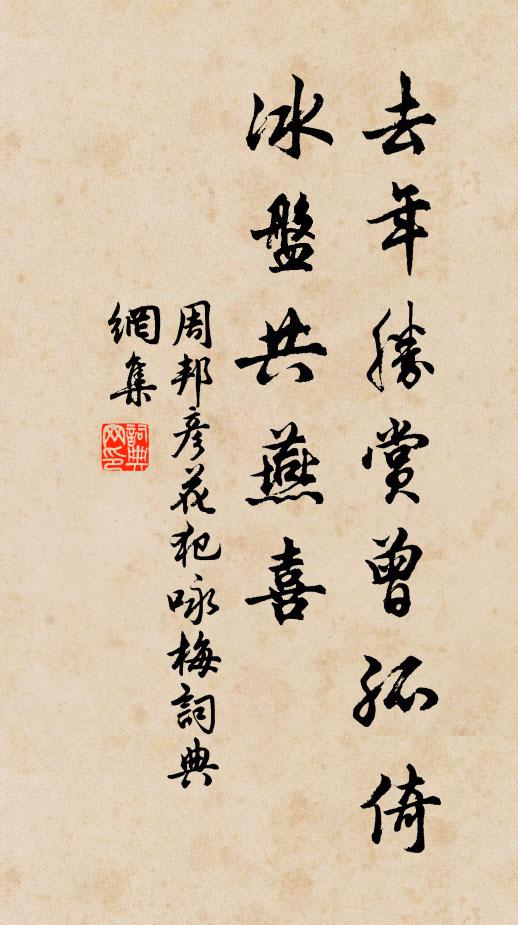 去年勝賞曾孤倚
冰盤共燕喜
周邦彦花犯咏梅詞典
網集
詞典
网印